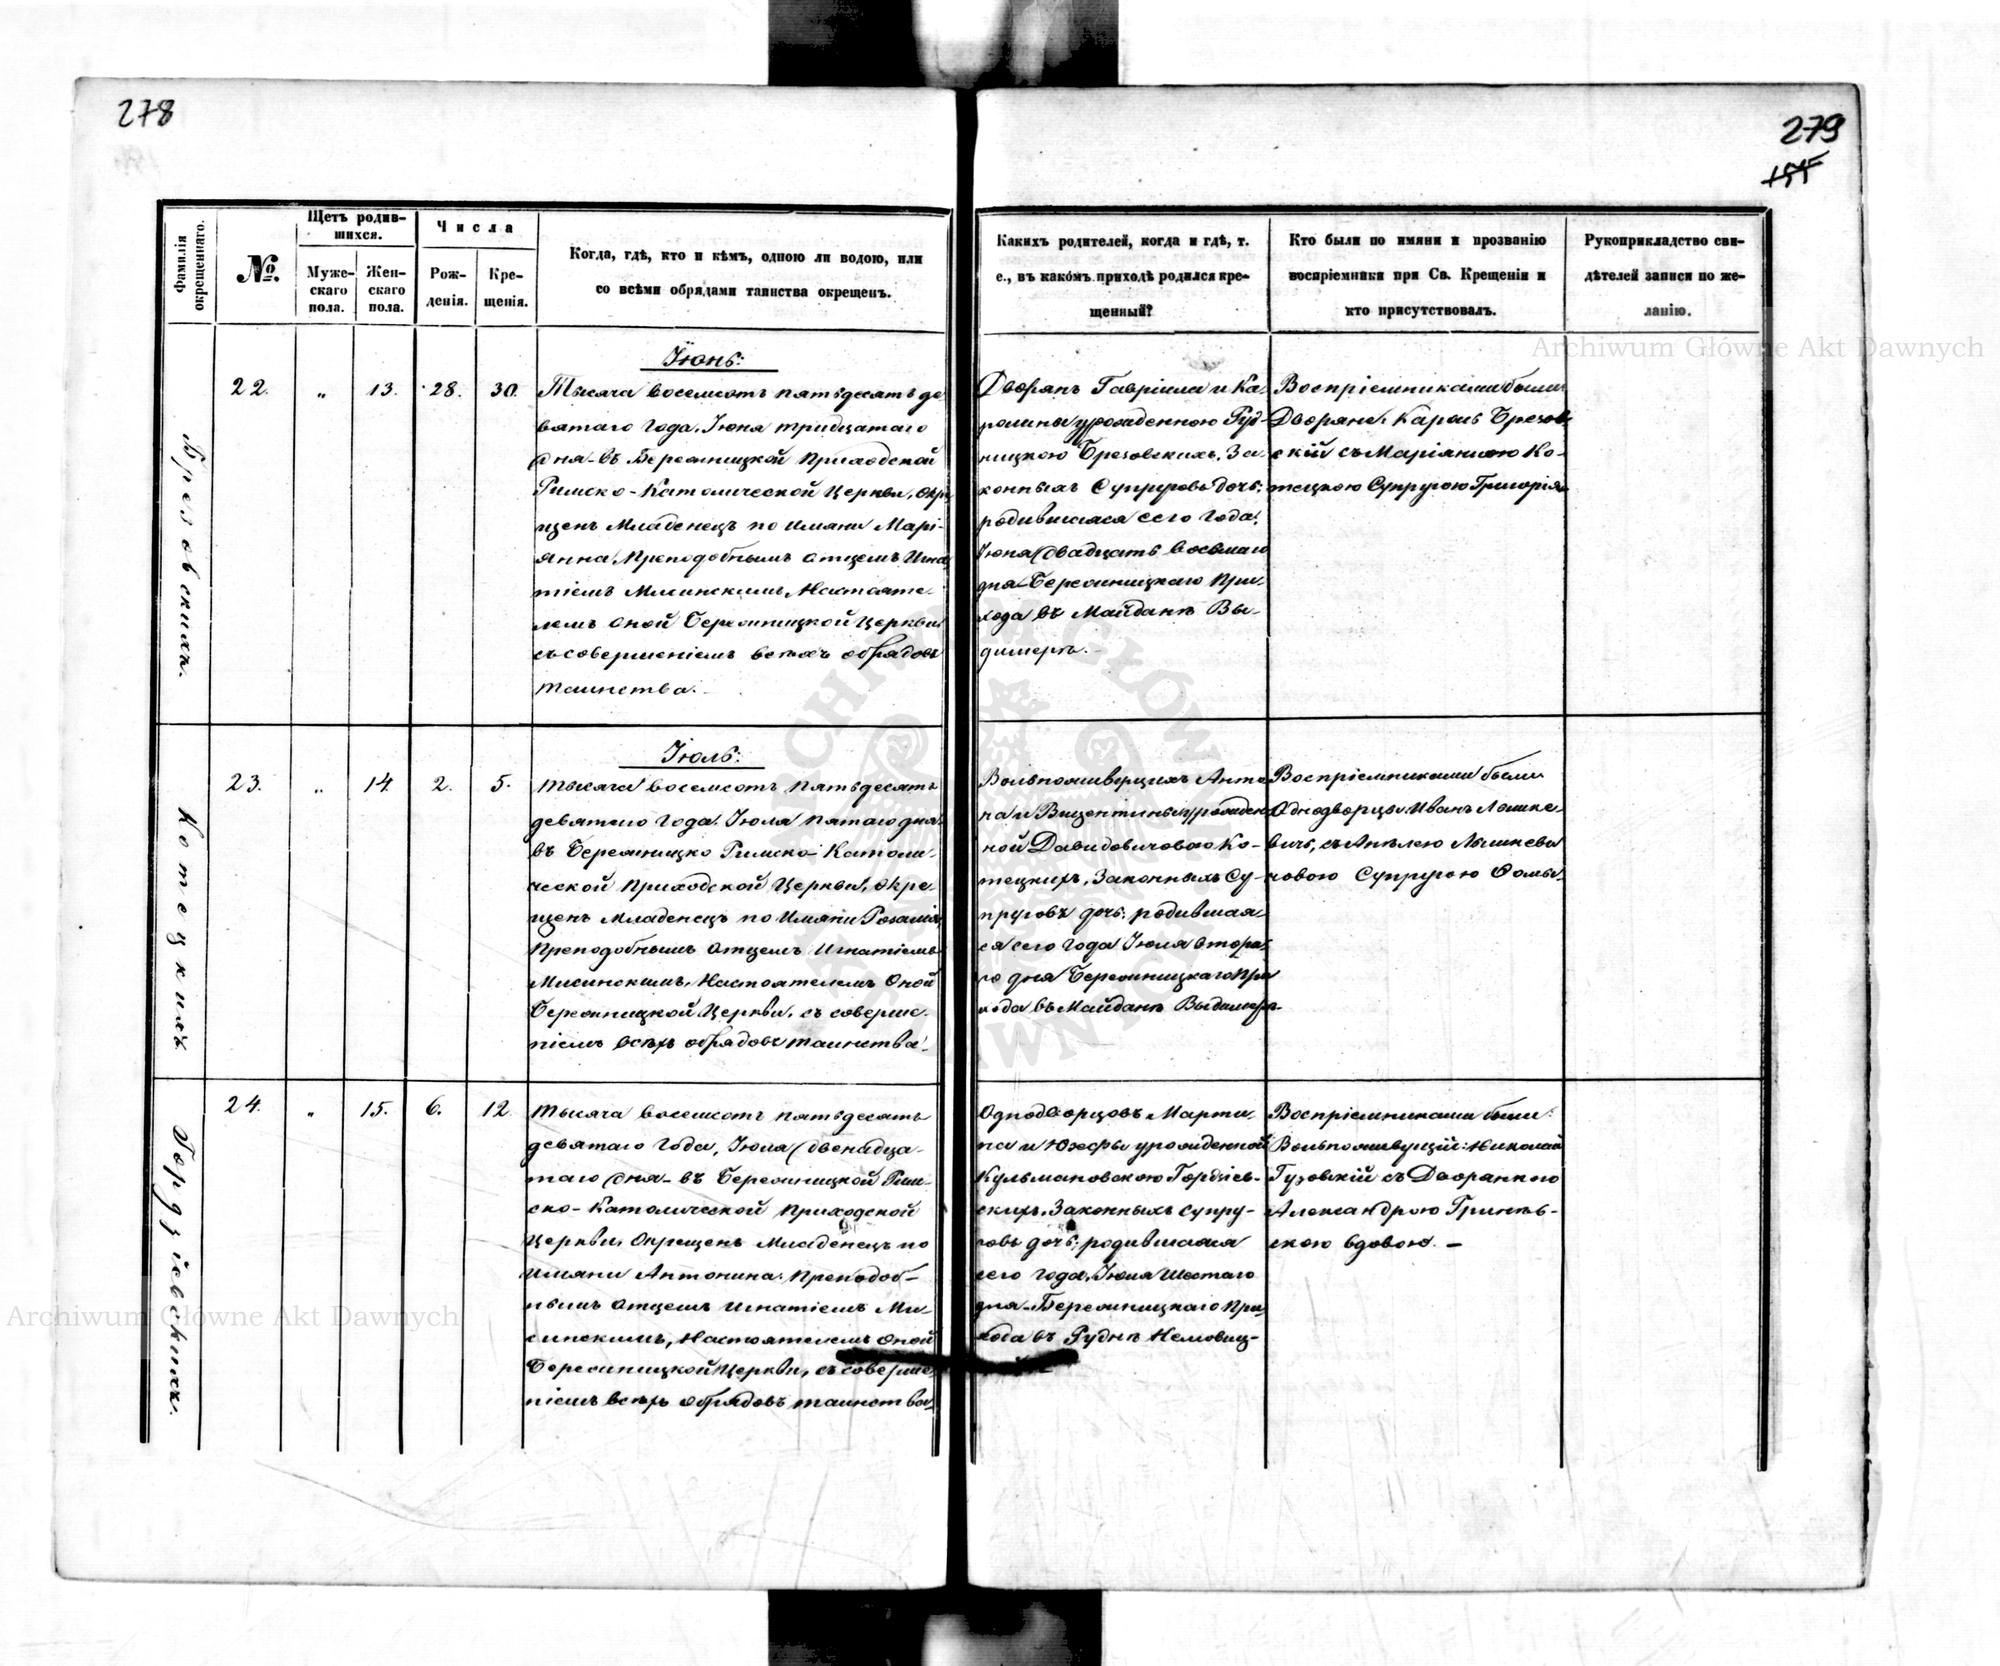 278
279
155
Фамилія окрещеннаго.
№.
Щетъ родив-
шихся.
Муже-
скаго
пола.
Жен-
скаго
пола.
Числа
Рож-
денія.
Кре-
щенія.
Когда, гдѣ, кто и кѣмъ, одною ли водою, или
со всѣми обрядами таинства окрещенъ.
Какихъ родителей, когда и гдѣ, т.
е., въ какомъ приходѣ родился кре-
щенный?
Кто были по имяни и прозванію
воспріемники при Св. Крещеніи и
кто присутствовалъ.
Рукоприкладство сви-
дѣтелей записи по же-
ланію.
Archiwum Główne Akt Dawnych
Брезовскихъ.
22. „ 13. 28. 30.
Іюнь:
Тысяча восемсотъ пятьдесятъ де
вятаго года, Іюня тридцатаго
дня въ Березницкой Приходской
Римско-Католической Церкви, окре
щенъ Младенецъ по имяни Марі-
янна, Преподобнымъ Отцемъ Игна
тіемъ Мисинскимъ, Настояте-
лемъ оной Березницкой Церкви
съ совершеніемъ всѣхъ обрядовъ
таинства.
Дворянъ Гавріила и Ка
ролины урожденною Руд-
ницкою Брезовскихъ, За-
конныхъ Супруговъ дочь;
родившаяся сего года,
Іюня двадцать восьмаго
дня Березницкаго При-
хода въ Майданѣ Вы-
димерѣ.
Воспріемниками были
Дворяне: Кароль Брезов
скій съ Маріянною Ко-
тецкою Супругою Григорія
Котецкихъ
23. „ 14. 2. 5.
Іюль:
Тысяча восемсотъ пятьдесятъ
девятаго года, Іюля пятаго дня
въ Березницко Римско-Католи-
ческой Приходской Церкви, окре-
щенъ Младенецъ по имяни Розалія
Преподобнымъ Отцемъ Игнатіемъ
Мисинскимъ, Настоятелемъ Оной
Березницкой Церкви, съ соверше-
ніемъ всѣхъ обрядовъ таинства.
Вольноопшверцихъ Анто
на и Вицентины урожден
ной Давидовичовою Ко-
тецкихъ, Законныхъ Су-
пруговъ дочь; родившая-
ся сего года Іюля втора-
го дня Березницкаго При
хода въ Майданѣ Выдимерѣ.
Воспріемниками были
Однодворцы Иванъ Ляшке-
вичь, съ Анѣлею Ляшкеви
човою Супругою Фомы.
Гордзіевскихъ.
24. „ 15. 6. 12.
Тысяча восемсотъ пятьдесятъ
девятаго года, Іюля двенадца-
таго дня въ Березницкой Рим-
ско-Католической Приходской
Церкви, Окрещенъ Младенецъ по
имяни Антонина, Преподоб-
нымъ Отцемъ Игнатіемъ Ми-
синскимъ, Настоятелемъ Оной
Березницкой Церкви, съ соверше-
ніемъ всѣхъ обрядовъ таинства.
Однодворцовъ Марти-
на и Юзефы урожденной
Кульмановскою Гордзіев-
скихъ, Законныхъ Супру-
говъ дочь; родившаяся
сего года, Іюля Шестаго
дня Березницкаго При
хода въ Руднѣ Немовиц-
Воспріемниками были:
Николай
Гузовскій съ Дворянкою
Александрою Гринев-
скою вдовою. —
Archiwum Główne Akt Dawnych